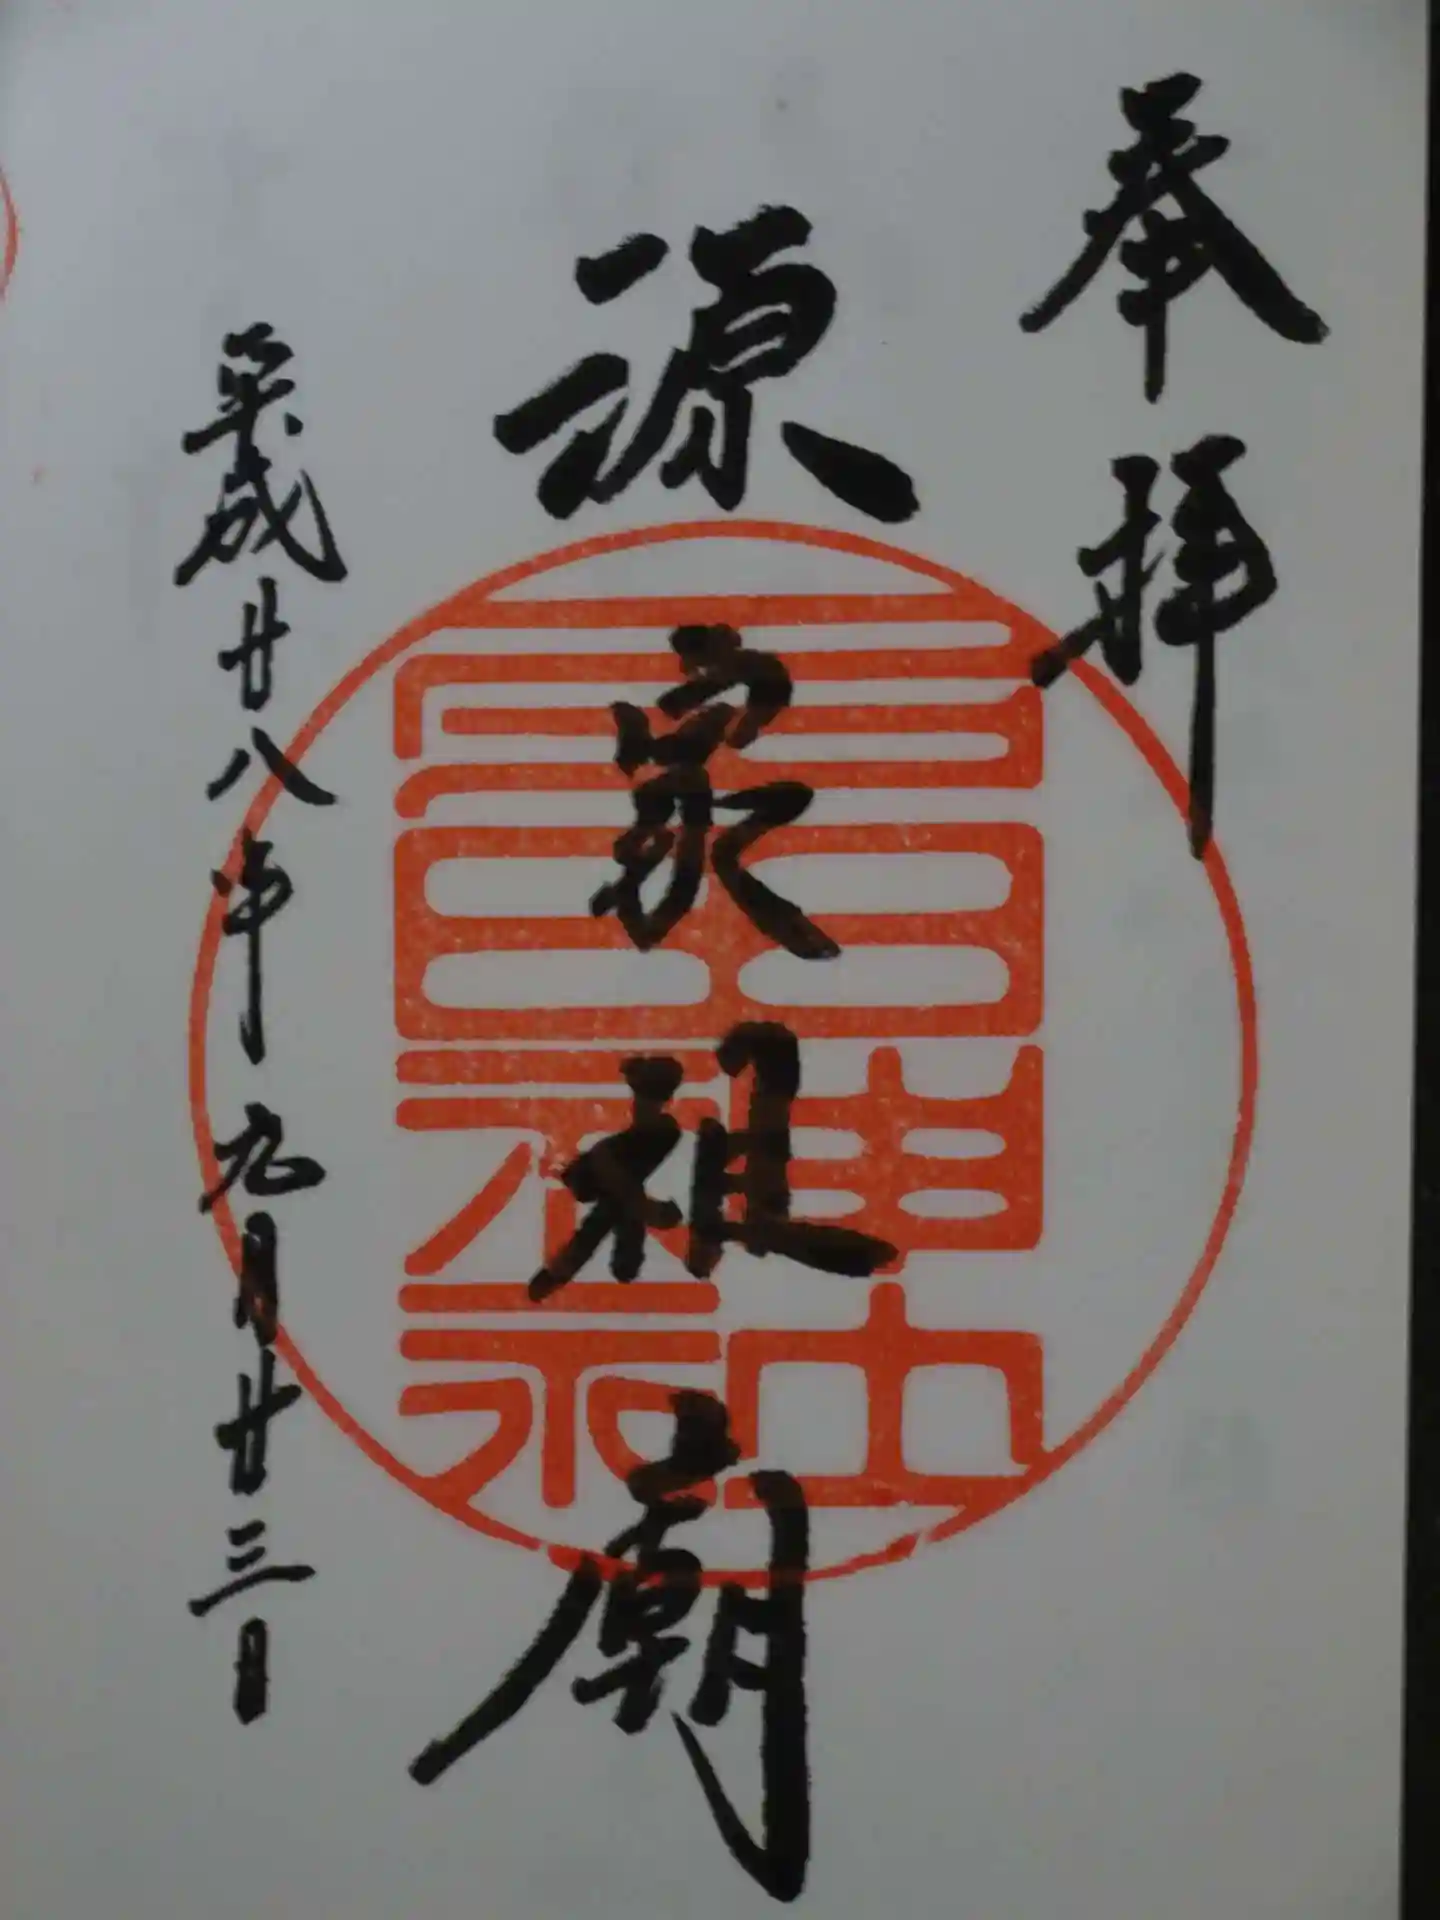 奉拝
源家祖廟
平成廿八年九月廿三日